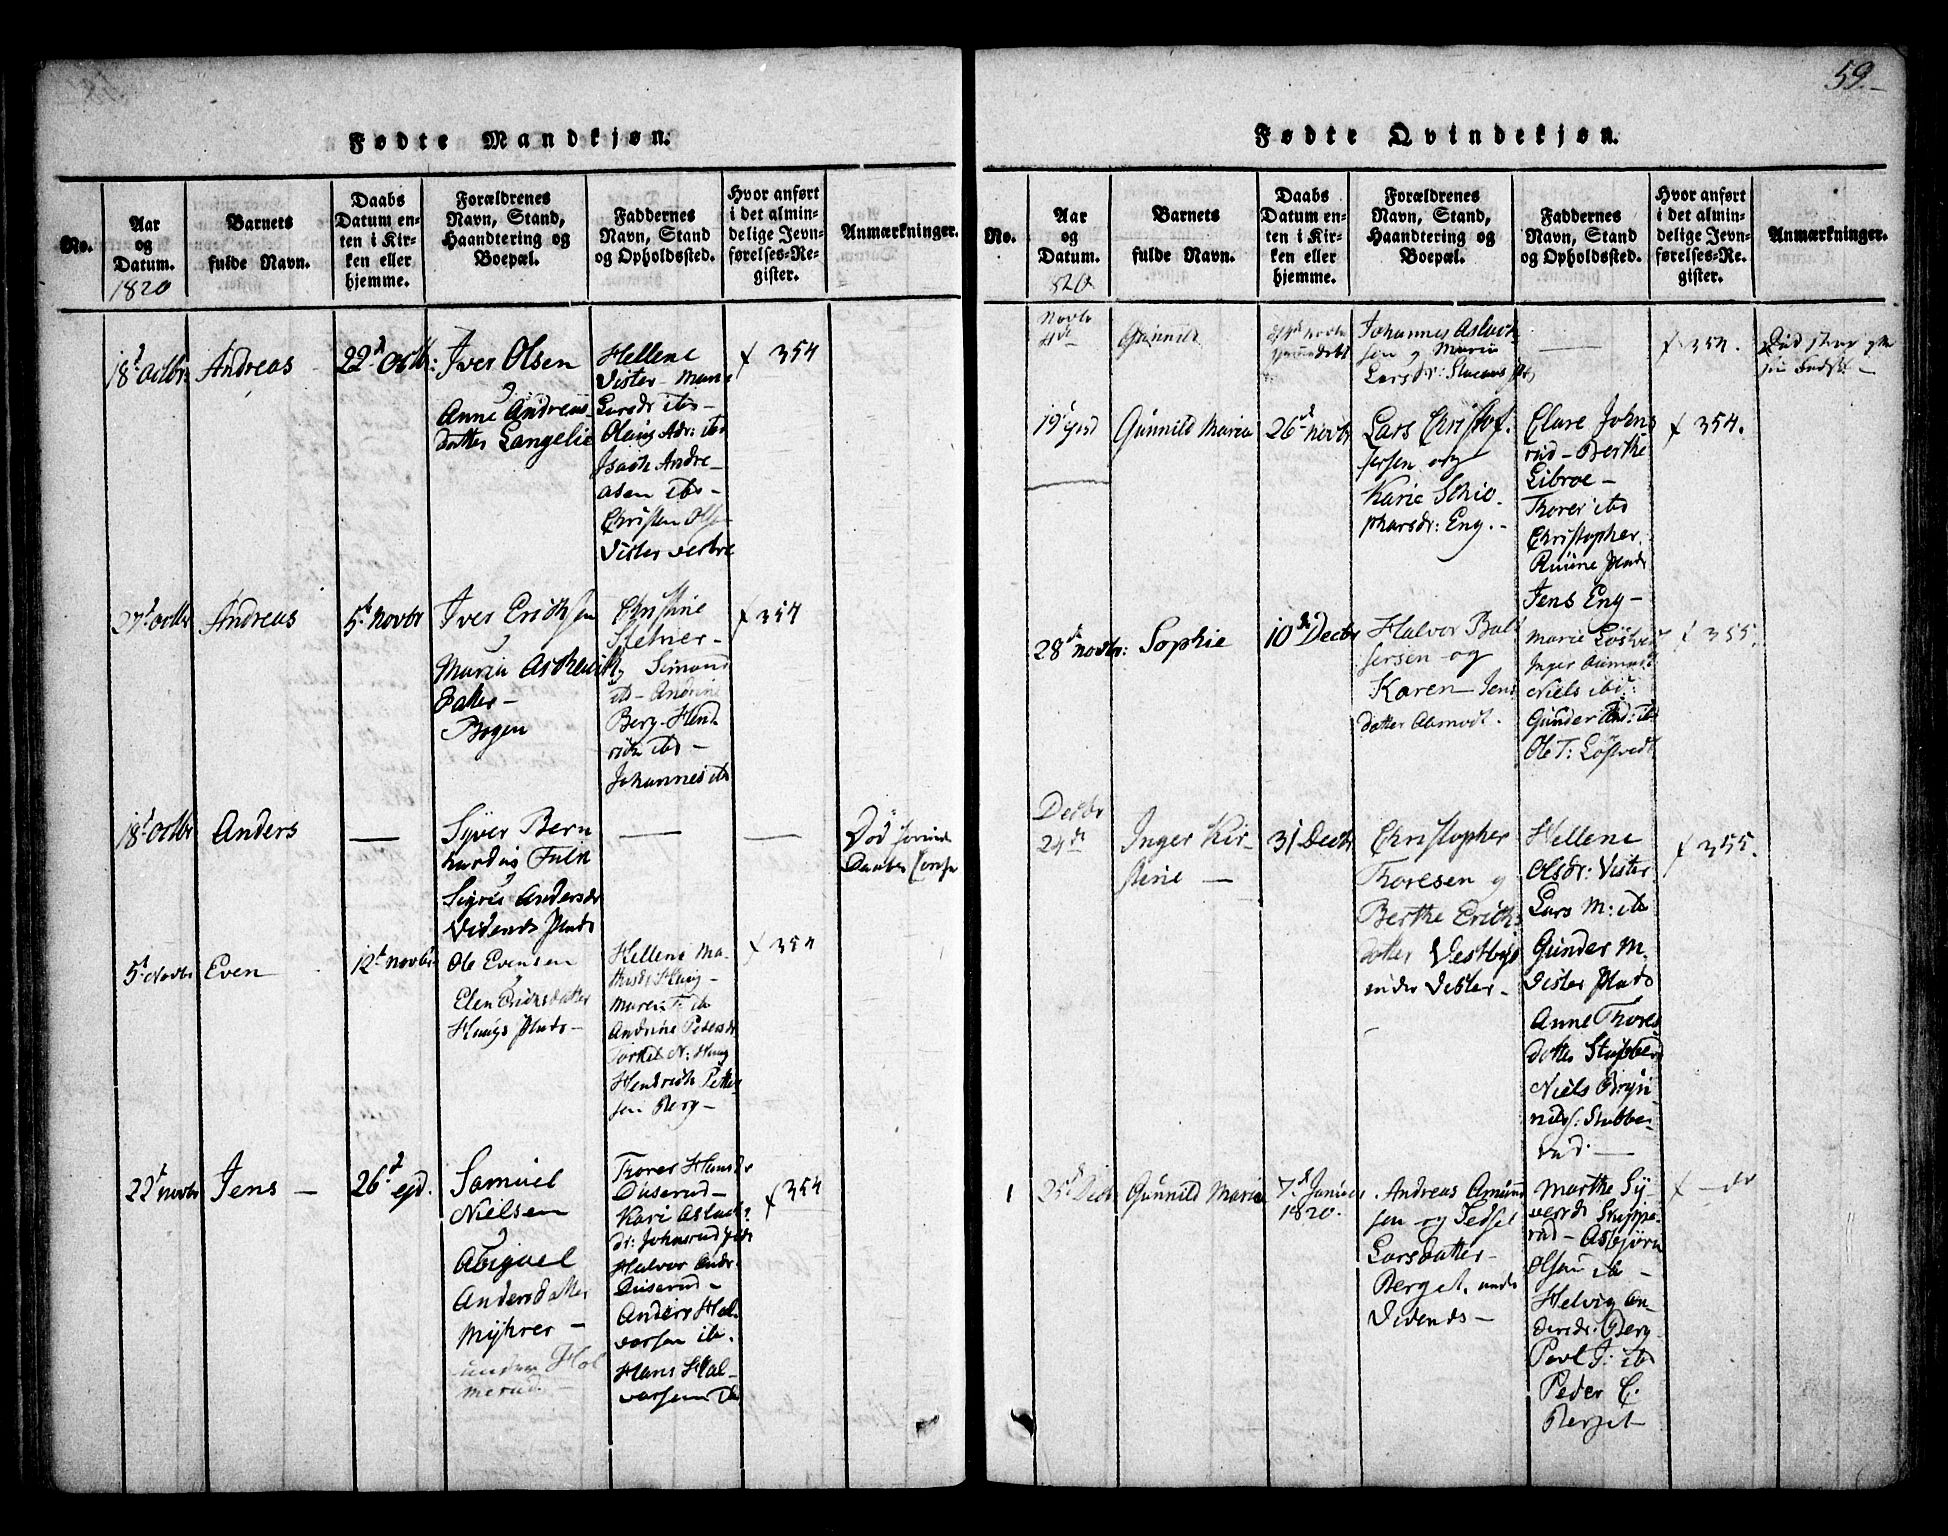 59.
Fødte Mandkjøn.
No.
Aar
og
Datum.
1820
Barnets
fulde Navn.
Daabs
Datum en-
ten i Kir-
ken eller
hjemme.
Forældrenes
Navn, Stand,
Haandtering og
Boepæl.
Faddernes
Navn, Stand
og Opholdssted.
Hvor anført
i det almin-
delige Jevn-
førelses-Re-
gister.
Anmærkninger.
18d Octbr
Andreas
22d Octbr:
Iver Olsen
Anne Andreas-
datter Langelie
Hellene
Vister - Maria
Larsdr ibd -
Olaug Adr: ibd
Isach Andre-
asen ibd -
Christen Ols-
Vister
354
27d Octbr
Andreas
5t Novbr
Iver Erichsen
Maria
datter -
Bogen
Christine
og Simond
ibd - Andrine
Berg - Hend
rich ibd -
Johannes ibd
354
18d Octbr
Anders
—
Syver Bern
hardus Fulk
Sigris Andersdr
Vidends Plads
—
—
Død forinde
Daaben
5t Novbr
Even
12t Novbr
Ole Evensen
Elen Erichsdatter
Haugs Plads -
Hellene Ma-
thisdr Haug -
Maren T: ib
Andrine Pedersdr
Torkel N: Haug
Hendrich Petter
sen Berg -
354
22d Novbr
Jens —
26d ejd.
Samuel
Nielsen
Abigael
Andersdatter
Myhrer -
under Hol
merud. -
Thorer Hansdr
Duserud -
Kari Aslachs
dr: Johnsrud
Halvor Andr
Duserud -
Anders Hal-
vorsen ib.
Hans Hal-
vorsen Du
354
Fødte Qvindekjøn.
No.
Aar
og
Datum.
820
Barnets
fulde Navn.
Daabs
Datum en-
ten i Kir-
ken eller
hjemme.
Forældrenes
Navn, Stand,
Haandtering og
Boepæl.
Faddernes
Navn, Stand
og Opholdssted.
Hvor anført
i det almin-
delige Jevn-
førelses-Re-
gister.
Anmærkninger.
Novbr
4d
Gunnild
Novbr
Johannes Aslach
sen og Maria
Larsdr:
—
354.
Død strax efter
sin Fødsel -
19d ejsd
Gunnild Maria
26d Novbr
Lars Christof-
fersen og
Karie Schio-
pharsdr: Eng. -
Clare Johns
rud - Berthe
Libroe -
Thorer ibd
Christopher
Plads
Jens Eng -
354.
28d Novbr:
Sophie
10d Decbr
Halvor Bal
sersen og
Karen Jens
datter Aamodt.
Marie Løstved
Inger Aamodt
Niels ibd:
Gunder And: ibd
Ole T: Løstvedt
355.
Decbr
24d
Inger Kir-
stine —
31 Decbr
Christopher
Thoresen og
Berthe Erichs
datter Vestbye
under Vister -
Hellene
Olsdr: Vister
Lars M: ibd
Gunder M.
Vister Plads
Anne Thores
datter Stubberud
Niels Bryn
nilds: Stubbe-
rud -
355.
1
25d Decbr
Gunnild Maria
7d Januar
1820.
Andreas Amund
sen og Sedsel
Larsdatter -
Berget, under
Vidends -
Marthe Sy-
versdr Skippe-
rud - Asbjørn
Olsen ib -
Helvig An-
dersdr: Berg
Povl J: ibd
Peder C.
Berget
— do